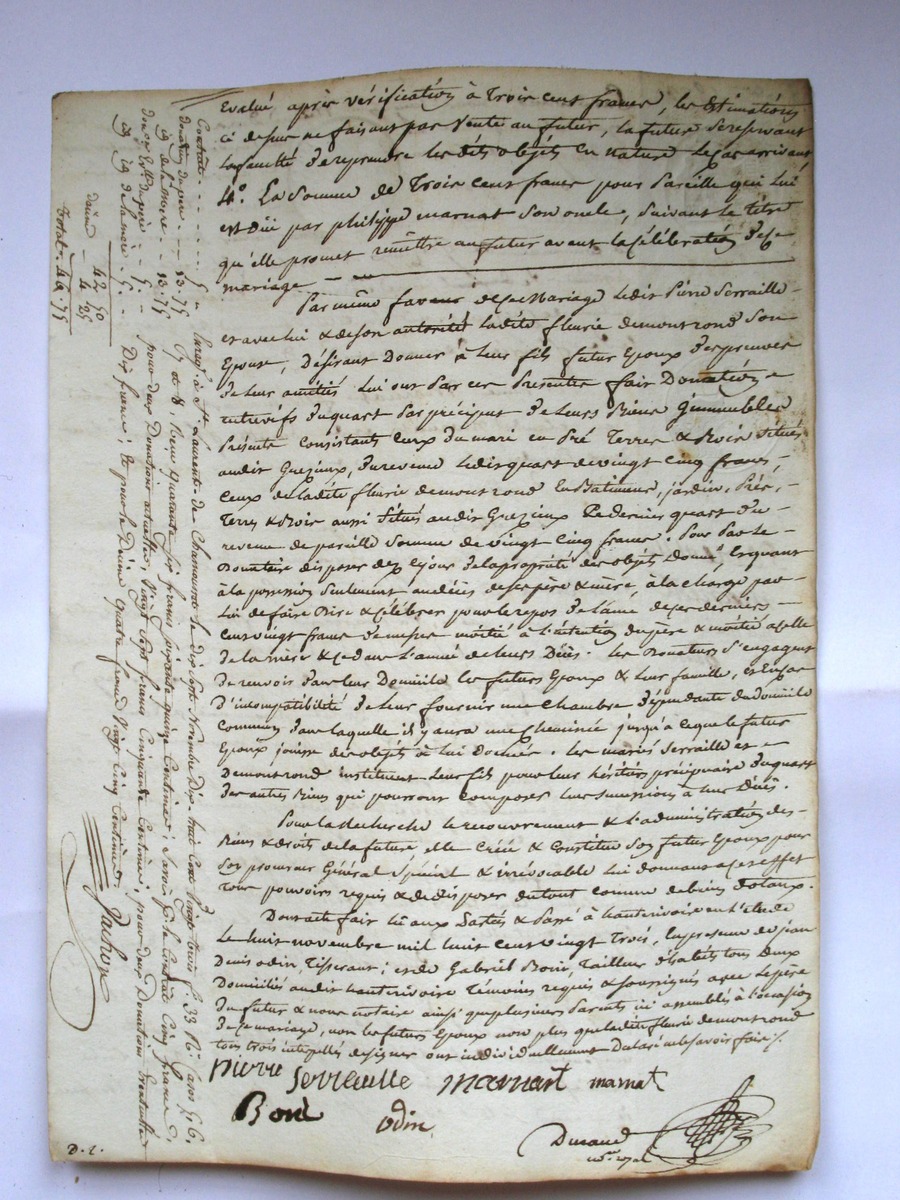 Evalué après vérification à Trois cent francs, les Estimations
ci dessus ne faisant pas Vente au futur, la future se reservant
la faculté de reprendre les dits objets en nature le cas arrivant
4.° La Somme de Trois cent francs pour Pareille qui lui
est düe par philippe marnat Son oncle, suivant le titre
qu'elle promet remettre au futur avant la Célébration de ce
mariage
Par même faveur de ce Mariage ledit Pierre Serraille
et avec lui & de son autorité ladite fleurie demontrond Son
Epouse, Désirant Donner à leur fils futur Epoux des preuves
de leur amitié, Lui ont Par ces Présentes fait Donation
entrevifs du quart Par préciput de leurs Biens Immeubles
Présents Consistants Ceux du mari en Pré Terres & Bois situés
audit Grezieux, du revenu ledit quart de vingt Cinq francs,
Ceux de ladite fleurie demontrond En Batiments, jardin, Prés,
Terres & Bois aussi Situés audit Grezieux Ce dernier quart du
revenu de pareille Somme de vingt Cinq francs. Pour Par le
Donataire disposer dez cejour de la propriété des objets Donnés, Et quant
à la possession Seulement au décès de ses père & mère, à la Charge par
Lui de faire Dire & Célébrer pour le repos de l'ame de ces derniers
Cent vingt francs de messes moitié à L'intention du père & moitié a celle
de la mère & ce dans L'année de leurs Décès. Les Donateurs S'engagent
De recevoir Dans leur Domicile les futurs Epoux & leur famille, et En cas
D'incompatibilité de leur fournir une Chambre dépendante du domicile
Commun dans laquelle il y aura une Cheminée jusqu'à ce que le futur
Epoux jouisse des objets à lui Donnés. Les mariés Serraille et
Demontrond instituent leur fils pour leur héritier préciputaire du quart
des autres Biens qui pourront composer leurs successions à leur Décès.
Pour la Recherche le recouvrement & L'administration des
Biens & droits de la future elle Créé & Constitue Son futur Epoux pour
Son procureur Général Spécial & irrévocable lui donnant à ces effet
Tous pouvoirs requis & de disposer du tout comme de biens dotaux.
Dont acte fait lû aux Parties & Passé à hauterivoire en l'étude
Le huit novembre mil huit cent vingt Trois, En presence de jean
Denis odin, Tisserant; et de Gabriel Boni, Tailleur d'habits tous Deux
Domiciliés audit hauterivoire Témoins requis & soussignés avec le père
du futur & nous notaire ainsi que plusieurs Parents ici assemblés à l'occasion
de ce mariage, non les futurs Epoux non plus que ladite fleurie demontrond
tous trois interpellés de signer ont individuellement Declaré ne le savoir faire
Pierre Serraille marnat marnat
Boni odin
Durand
D. L.
Contrat 5
donation du père 13.75
id de la mère 13.75
donation Evlle du père 5
id id de la mère 5
42 50
Dixme 4 25
Total 46.75
Enregé à St. Laurent-de-Chamousset le dix sept Novembre Dix-huit cent Vingt trois f.° 33 R.° Cases 5, 6
7 et 8, Reçu quarante six francs soixante quinze Centimes; Savoir p.r le Contrat Cinq francs
pour deux Donations actuelles, Vingt Sept francs Cinquante Centimes; pour deux Donations Eventuelles
Dix francs; et pour le Dixme quatre francs Vingt Cinq Centimes.